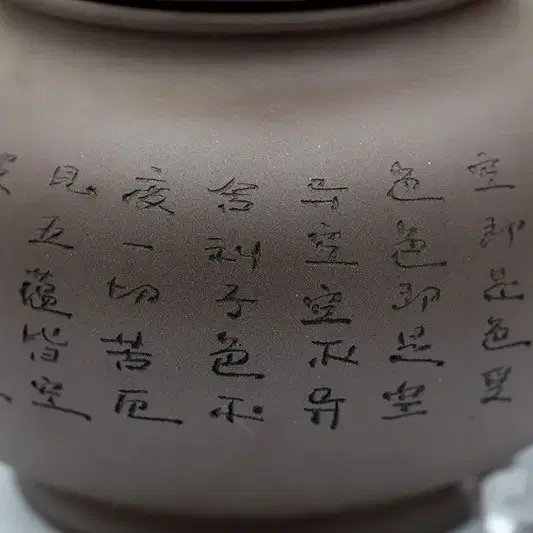 見五蘊皆空
度一切苦厄
舍利子色不
异空空不异
色色即是空
空即是色受